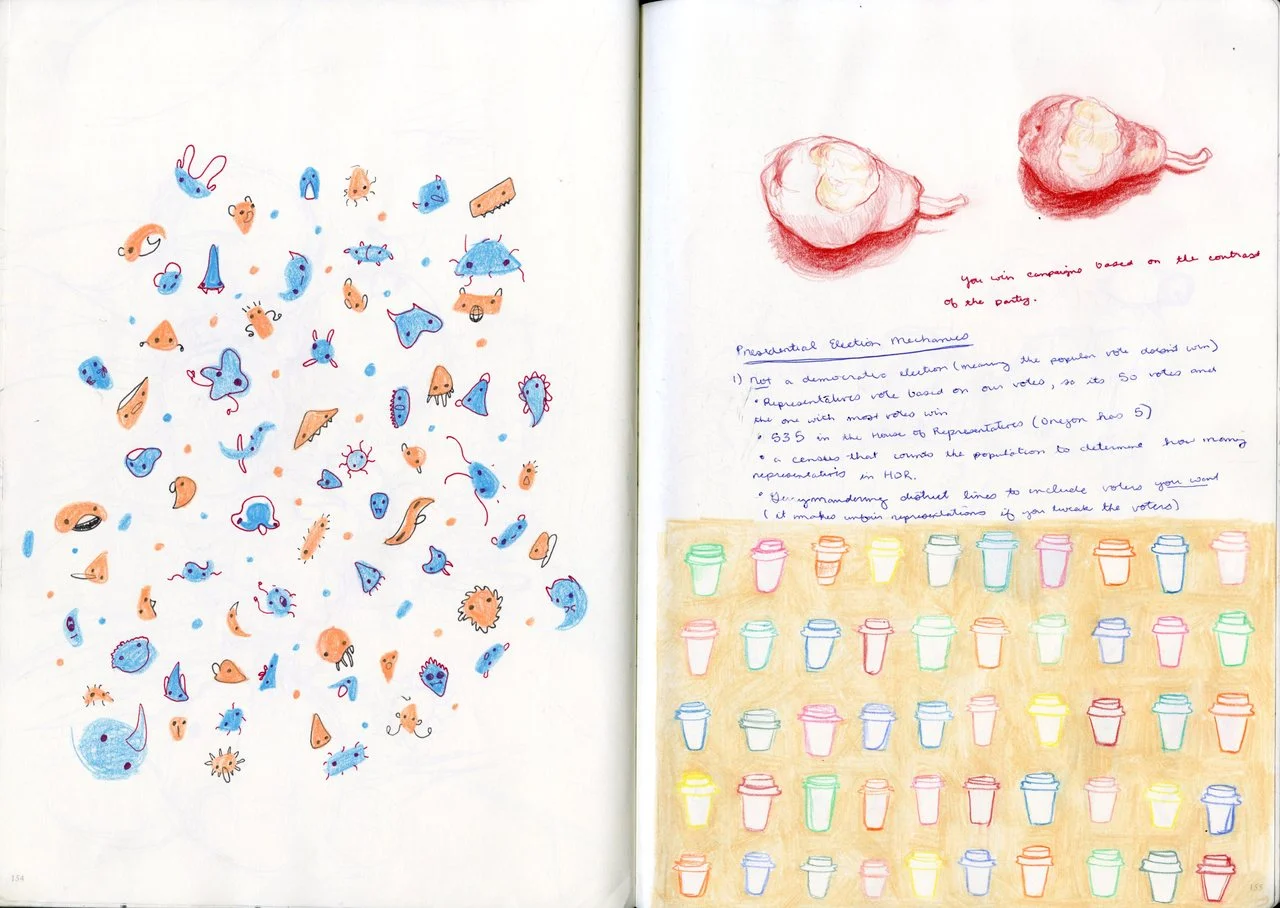 You win campaigns based on the contrast
of the party.
Presidential Election Mechanics
1) Not a democratic election (meaning the popular vote doesn't win)
• Representatives vote based on our votes, so its 50 votes and
the one with most votes win
• 535 in the House of Representatives (Oregon has 5)
• a census that counts the population to determine how many
representatives in HOR.
• Gerrymandering district lines to include voters you want
( it makes unfair representations if you tweak the voters)
154
155